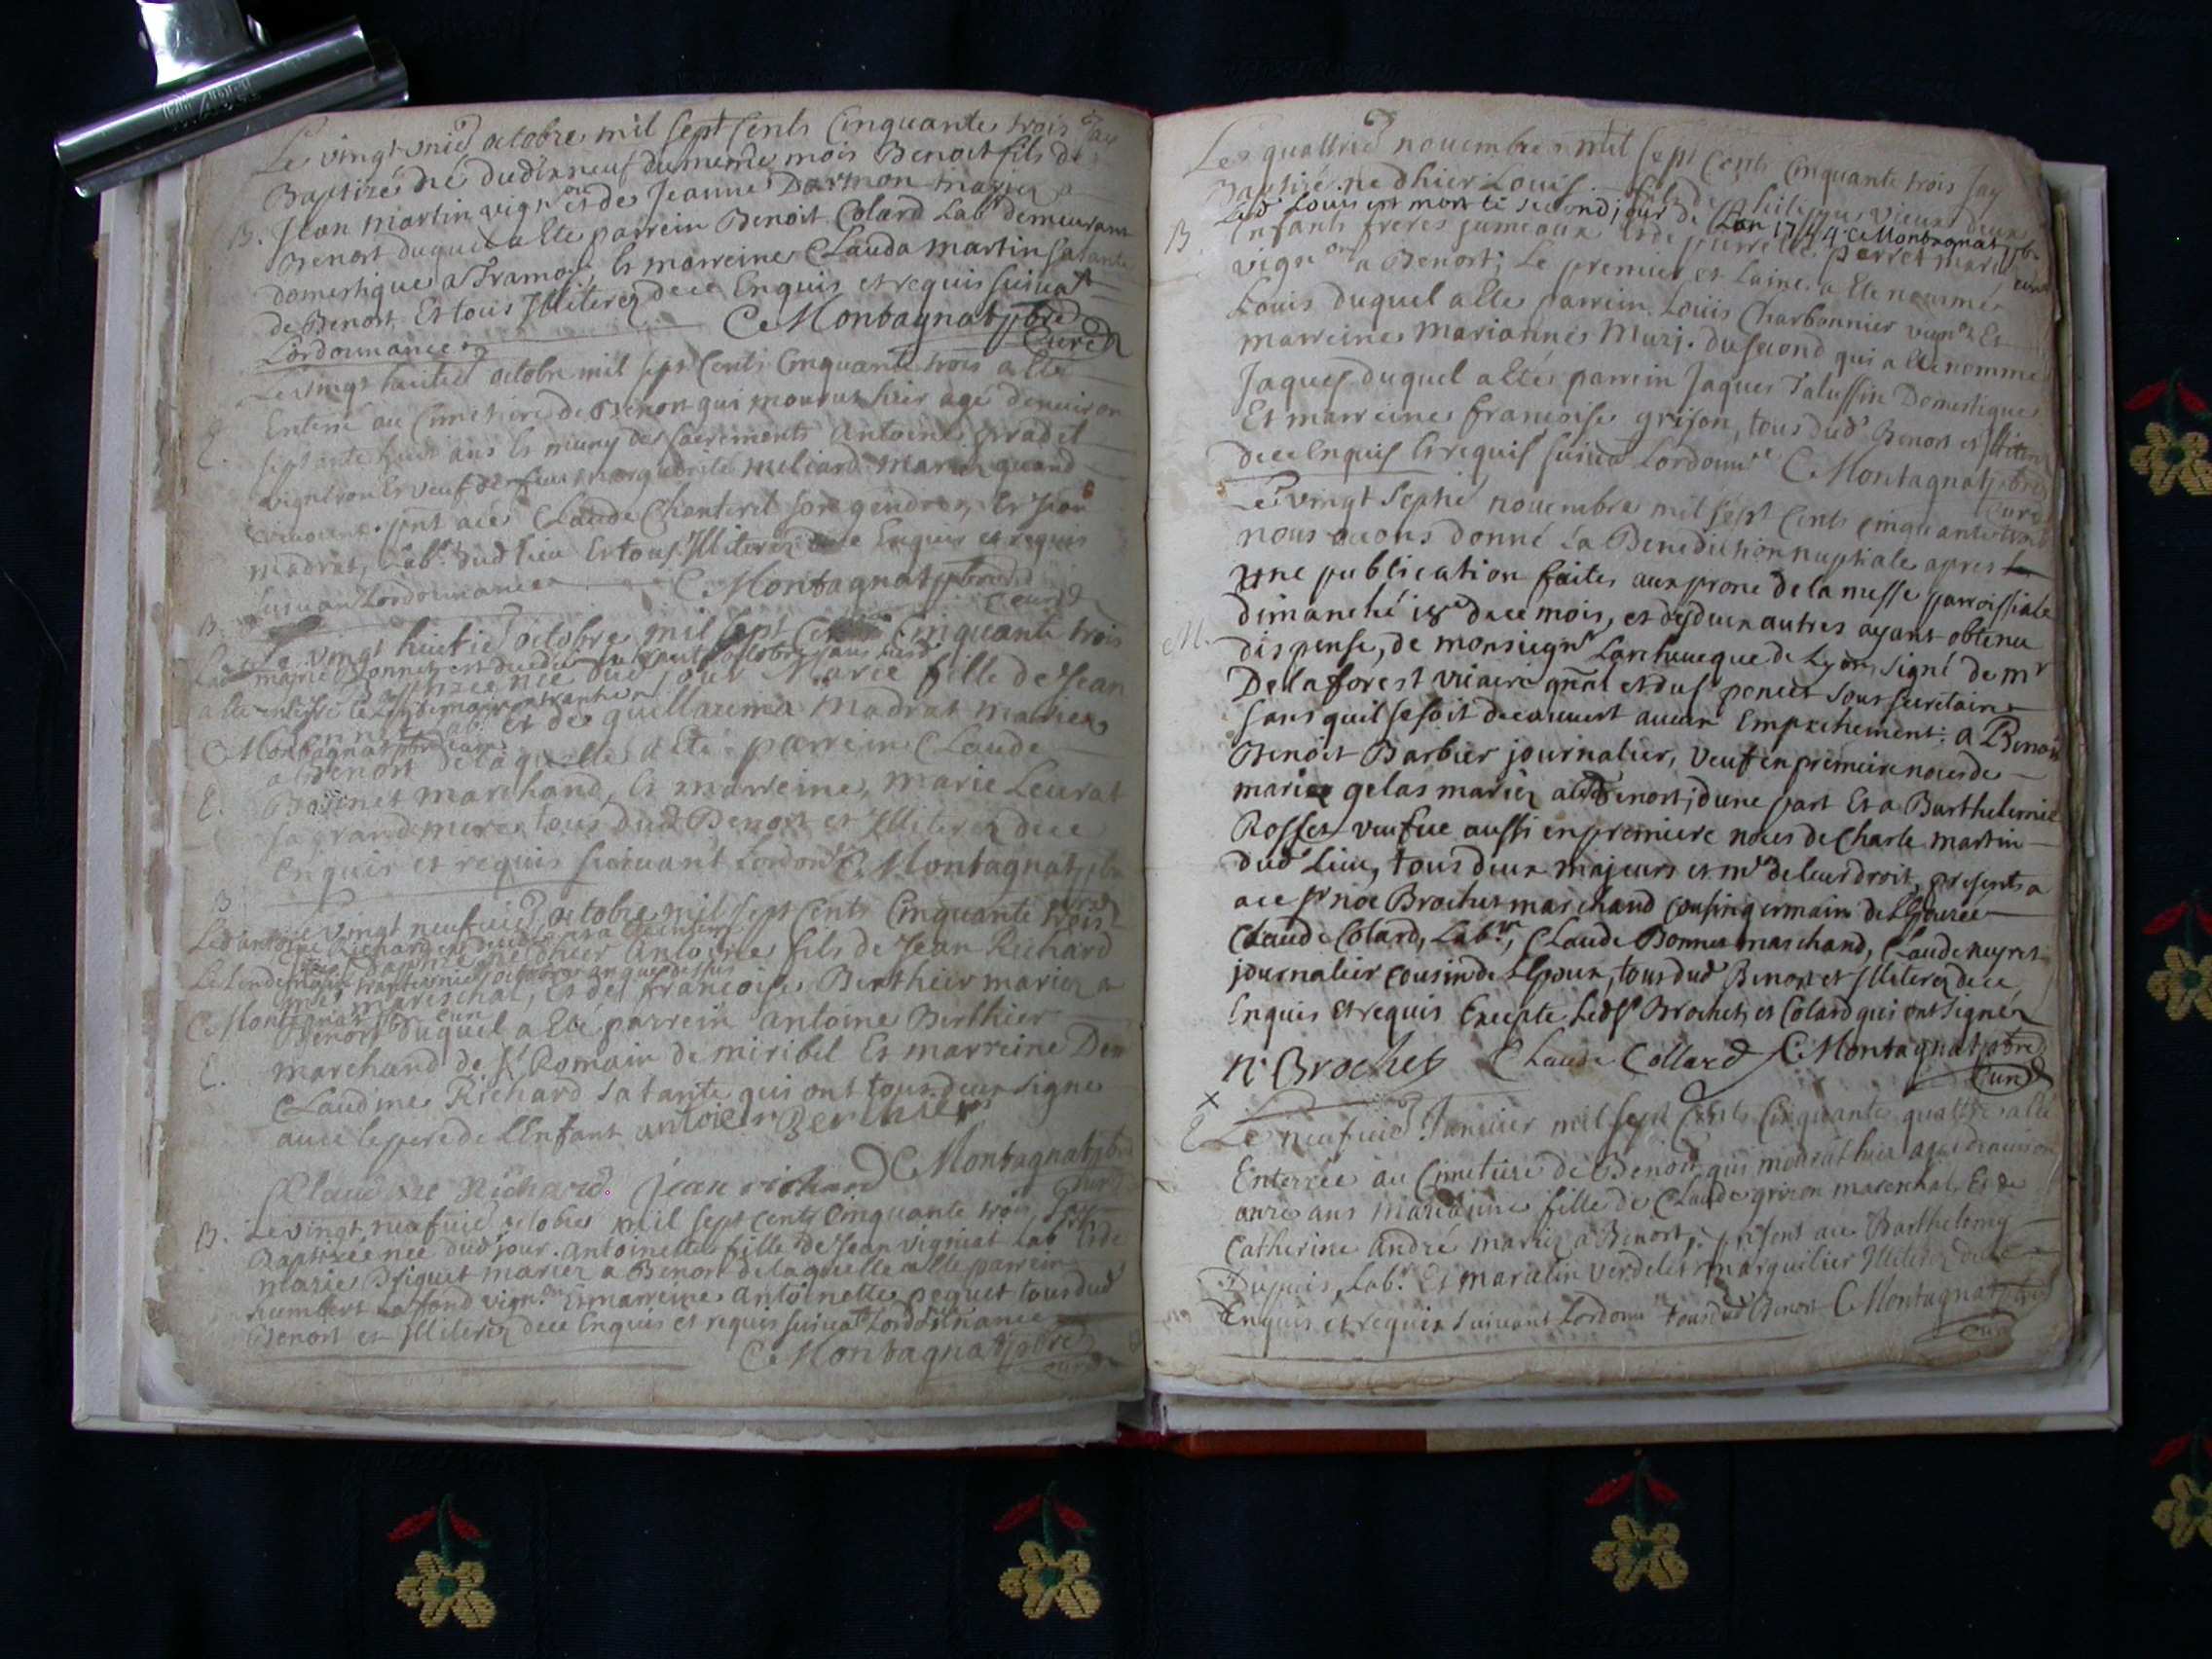 Le vingt unie octobre mil sept cents Cinquante trois Jay
Baptizé né du dixneuf du meme mois Benoit fils de
B. Jean martin vign.on et de Jeanne Darmon mariez a
Benost duquel a ete parrein Benoit Colard Lab.r demeurant
domestique a Tramoie, Et marreine Clauda martin sa tante
de Benost Et tous Illiterez de ce Enquis et requis suivat
Lordonnance C. Montagnat pbre
Curé
Le vingt huitie octobre mil sept Cents Cinquante trois a ete
Enterré au Cimetiere de Benost qui mourut hier agé denviron
E. septante huit ans Et muny des sacrements Antoine pradel
vigneron Et veuf de marguerite miliard mariez quand
vivoient. pnt a ce Claude Chanterel son gendre, Et Jean
madrat, Lab.r dud lieu Et tous Illiterez de ce Enquis et requis
suivan Lordonnance C. Montagnat pbre
Curé
B. Le vingt huitie octobre mil sept Cents Cinquante trois
Lad marie Bonnet est
Baptizée née dud jour Marie fille de Jean
a ete enterré le
Bonnet Lab.r Et de guillauma Madrat mariez
C. Montagnat pbre curé
a Benost de laquelle a été parrein Claude
E. Bonnet marchand, Et marreine, marie Leurat
sa grandmere, tous dud Benost et Illiterez de ce
Enquis et requis suivant Lordon.ce C. Montagnat pbre
Curé
B Le vingt neufuie octobre mil sept Cents Cinquante trois
Led antoine Richard est
Baptizé né dhier Antoine fils de Jean Richard
Le lendemain trente unie octobre an que dessus
mareschal, Et de francoise Berthier mariez a
C. Montagnat pbre curé
Benost duquel a été parrein antoine Berthier
E. marchand de St Romain de miribel Et marreine Dem
Claudine Richard sa tante qui ont tous deux signe
avec le pere de lEnfant antoine Berthier
Claudine Richard. Jean richard C. Montagnat pbre
Curé
B. Le vingt neufuie octobre mil sept cents Cinquante trois Jay
Baptizée née dud jour. Antoinette fille de Jean vigniat Lab.r Et de
marie Briquet mariez a Benost de laquelle a ete parrein
humbert Laffond vign.on Et marreine antoinette peguet tous dud
Benost et Illiterez de ce Enquis et requis suivat Lordonnance
C. Montagnat pbre
curé
Le quattrie novembre mil sept Cents Cinquante trois Jay
Baptizé. né dhier Louis fils de philippe vieux deux
Led Louis est mort le second jour de Lan 1754 C. Montagnat pbre
curé
B Enfants freres jumeaux Et de pierrette perret mariez
vign.on a Benost; Le premier et Lainé a ete nommé
Louis duquel a ete parrein Louis Charbonnier vign.on Et
marreine Marianne Muzi. du second qui a ete nommé
Jaques duquel a eté parrein Jaques Talussin Domestique
Et marreine francoise grison, tous dud Benost et Illiterez
de ce Enquis Et requis suivat Lordonn.ce C. Montagnat pbre
Curé
Le vingt septie novembre mil sept Cents cinquante trois
nous avons donné La Benediction nuptiale apres
une publication faite aux prone de la messe parroissiale
dimanche 18e du ce mois, et des deux autres ayant obtenu
M. dispense, de monsiegnr Larcheveque de Lyon, signé de mr
De la forest viciaire gñal et du sr poncet sous secretaire
sans quil se soit decouvert aucun Empechement: a Benoit
Benoit Barbier journalier, Veuf en premiere noces de
marie gelas mariez aud Benost; dune part Et a Barthelemie
Rosset veufue aussi en premiere noces de Charle martin
dud Lieu, tous deux majeurs et mes de leur droit, presents a
ace sr noé Brochet marchand cousin germain de lEpouzée
Claude Colard, Lab.r, Claude Bonnet marchand, Claude neyret
journalier cousin de lEpoux, tous dud Benost et Illiterez de ce
Enquis Et requis Excepté Led sr Brochet et Colard qui ont signéz
n. Brochet Claude Collard C. Montagnat pbre
Curé
E Le neufuie Janvier mil sept Cents Cinquante quattre a été
Enterrée au Cimetiere de Benost qui mourut hier agée denviron
onze ans fille de Claude grizon mareschal, Et de
Catherine André mariez a Benost; present ace Barthelemy
Dupuis, Lab.r Et marcelin verdelet marguilier Illiterez de ce
Enquis et requis suivant Lordonn tous dud Benost C. Montagnat pbre
curé